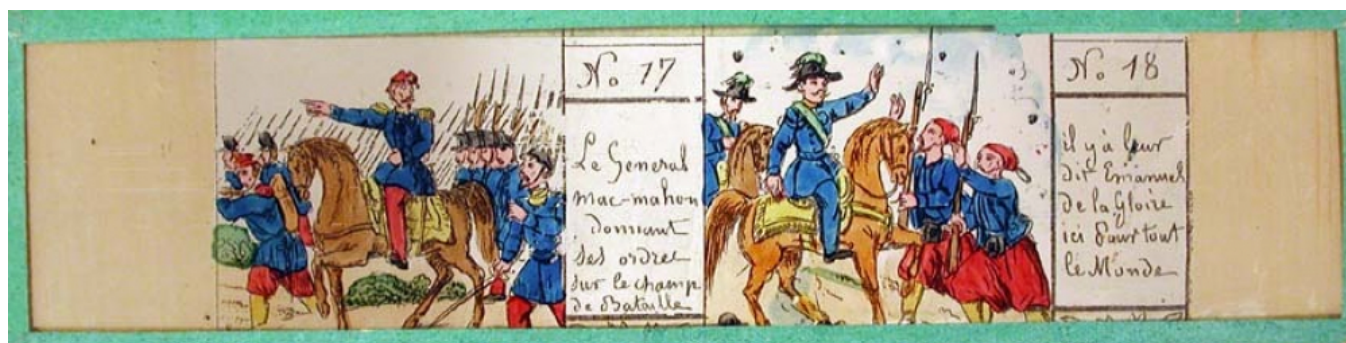 No 17
Le General
Mac-mahon
donnant
ses ordres
sur le champ
de Bataille
No 18
il y à leur
dit Emanuel
de la Gloire
ici pour tout
le Monde